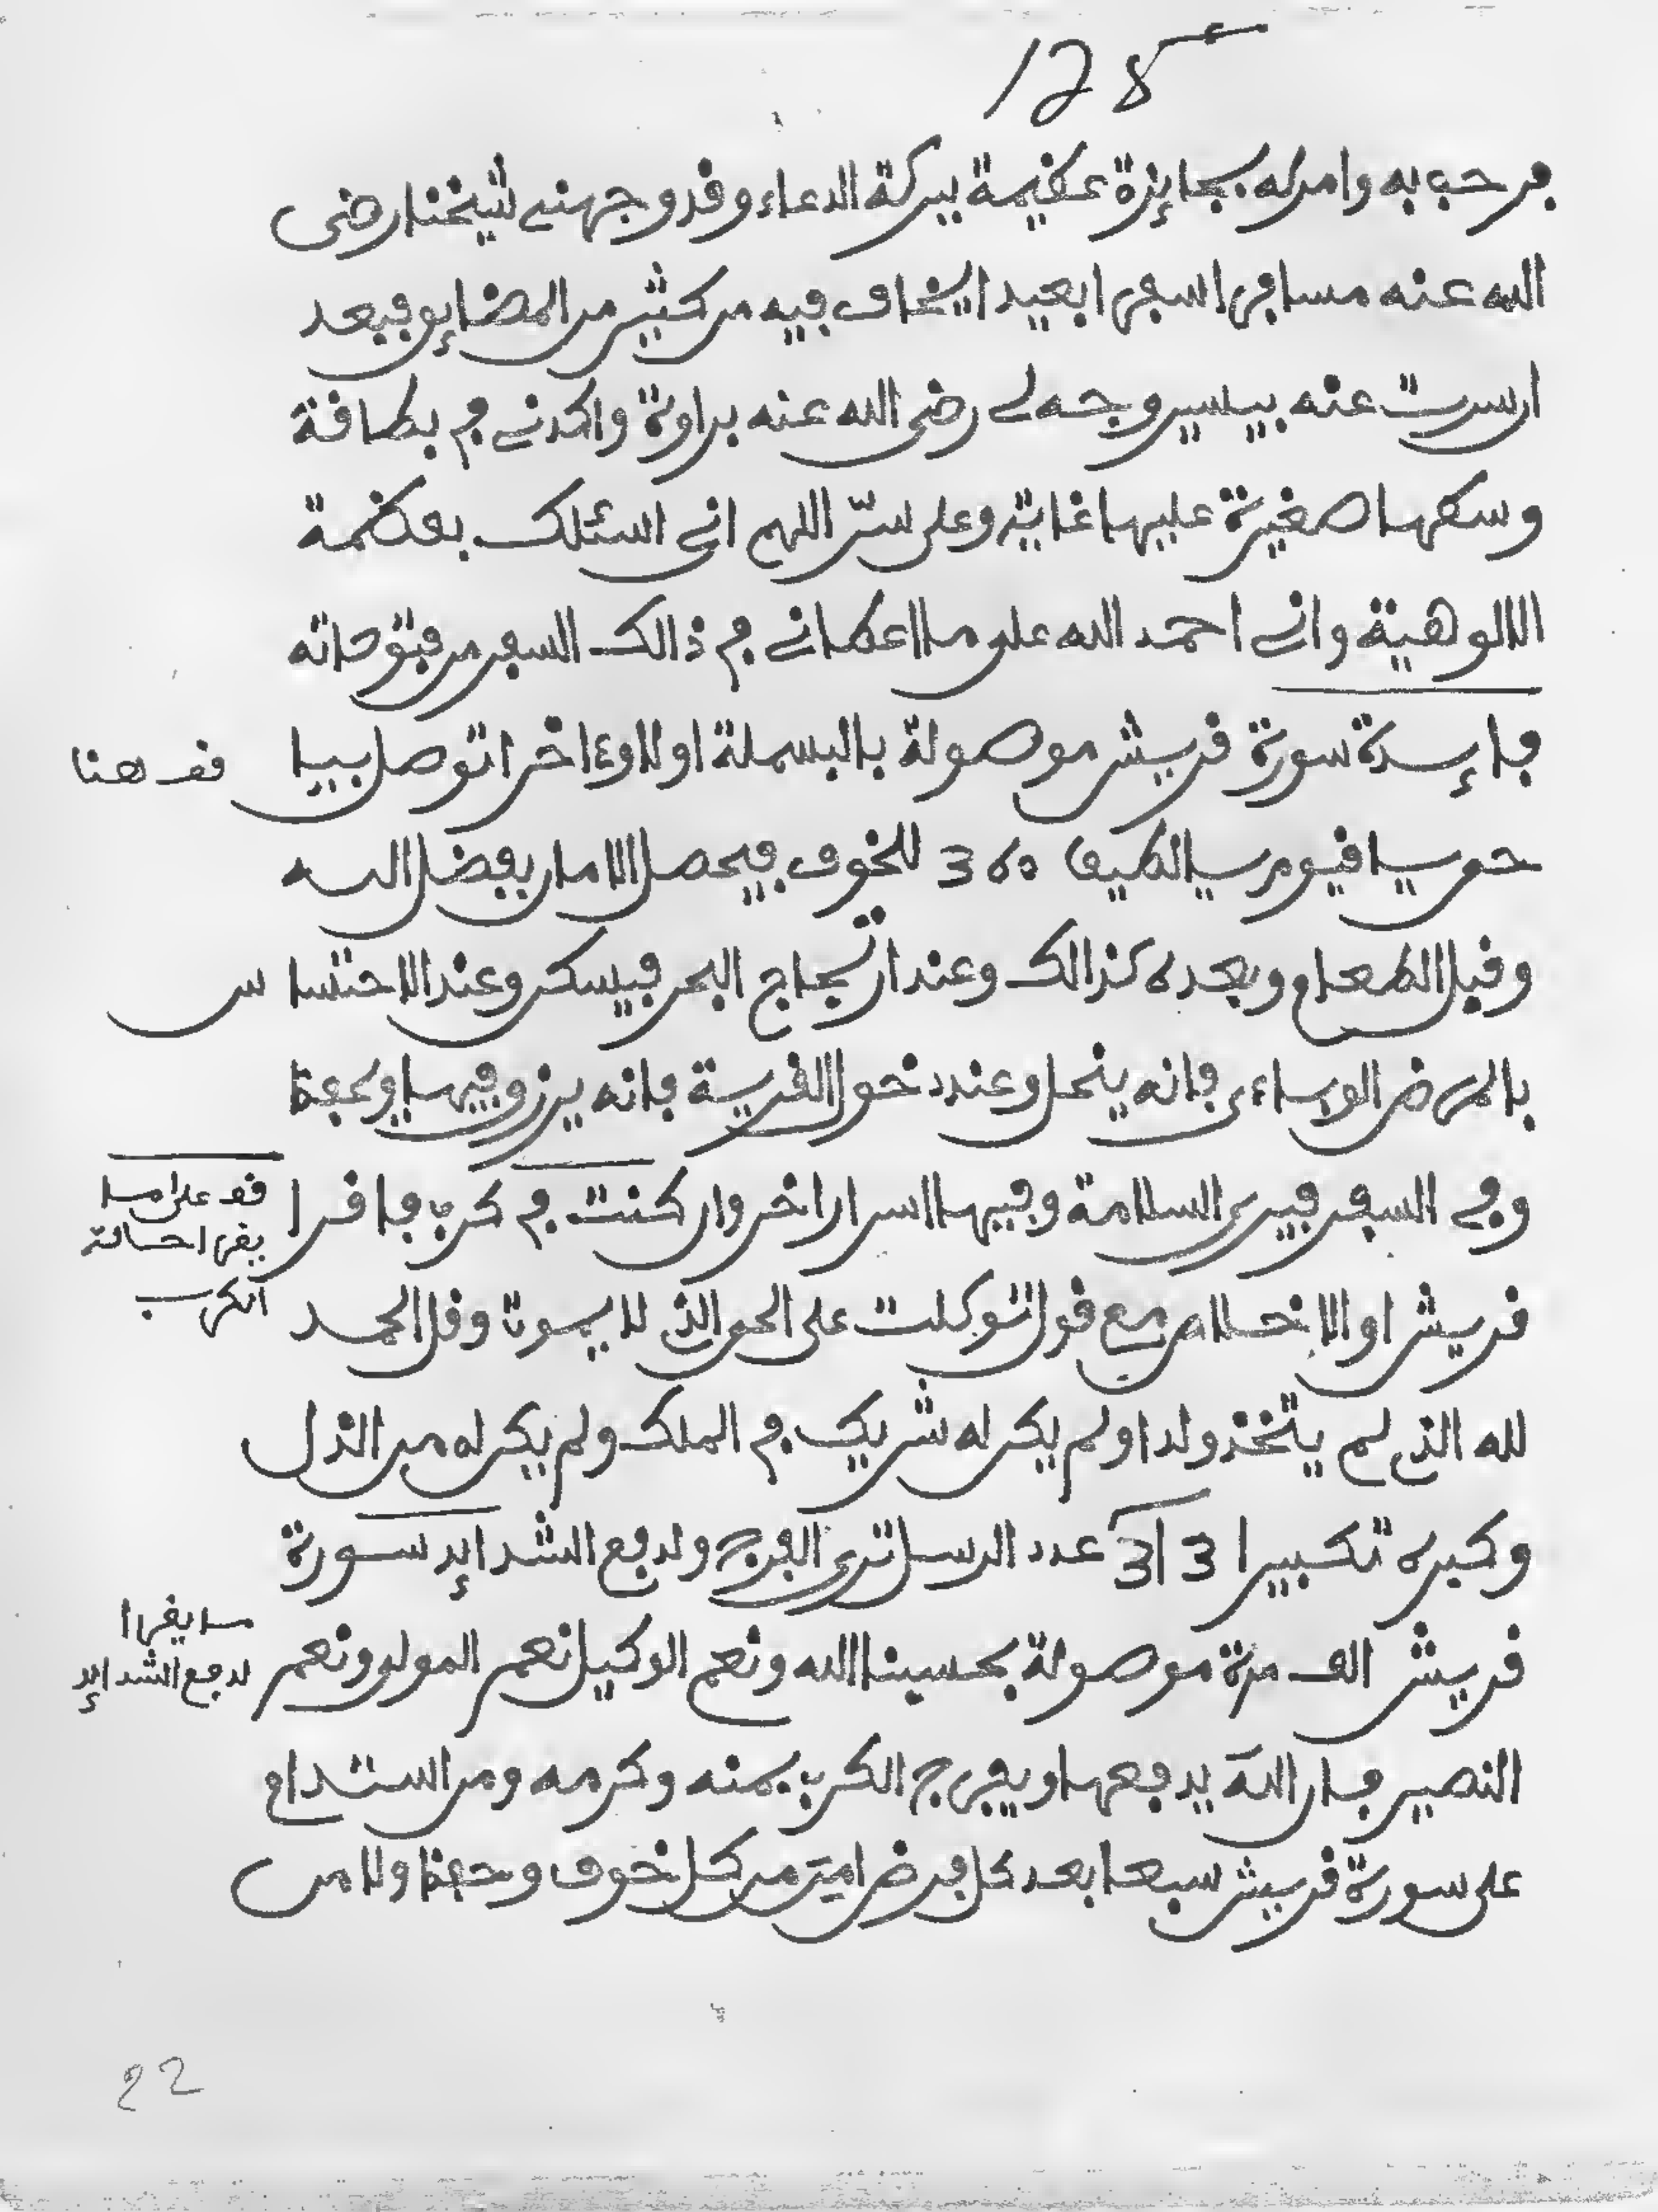 128
فرحب به وامر له بجايزة عظيمة ببركة الدعاء وقد وجهني شيخنا رضي
الله عنه مسافرا سفرا بعيدا يخاف فيه من كثير من المضايق فبعد
ان سرت عنه بيسير وجه لي رضي الله عنه براوة واكدني في بطاقة
وسطها صغيرة عليها غاية وعلى ستر اللهم اني اسئلك بعظمة
الالوهية واني احمد الله على ما اعطاني في ذالك السفر من فتوحاته
فايدة سورة قريش موصولة بالبسملة اولا وءاخرا توصل بيا
حي يا قيوم يا لطيف 360 للخوف فيحصل الامان بفضل الله
وقبل الطعام وبعده كذالك وعند ارتجاج البحر فيسكن وعند الاحتباس
بالمرض الوباءي فانه ينحل وعند دخول القرية فانه يرزق فيها ويحفظ
وفي السفر فيرى السلامة وفيها اسرار اخر وان كنت في كرب فاقرا
قريش او الاخلاص مع قول توكلت على الحي الذي لا يموت وقل الحمد
لله الذي لم يتخذ ولدا ولم يكن له شريك في الملك ولم يكن له من الذل
وكبره تكبيرا 313 عدد الرسل ترى الفرج ولدفع الشدايد سورة
قريش الف مرة موصولة بحسبنا الله ونعم الوكيل نعم المولى ونعم
النصير فان الله يدفعها ويفرج الكرب بمنه وكرمه ومن استدام
على سورة قريش سبعا بعد كل فرض امن من كل خوف وحفظ ولا من
قف هنا
قف على ما
يقرا حالة
الكرب
ما يقرا
لدفع الشدايد
22